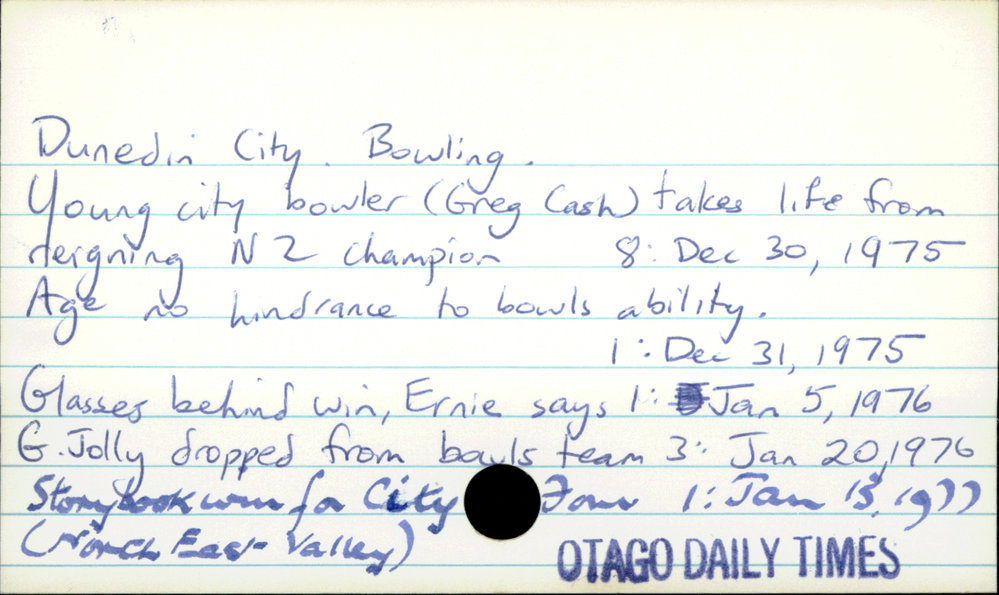 Dunedin City. Bowling.
Young city bowler (Greg Cash) takes life from
reigning NZ champion 8: Dec 30, 1975
Age no hindrance to bowls ability.
1: Dec 31, 1975
Glasses behind win, Ernie says 1: Jan 5, 1976
G. Jolly dropped from bowls team 3: Jan 20, 1976
Storybook win for City Four 1: Jan 13, 1977
(North East Valley)
OTAGO DAILY TIMES